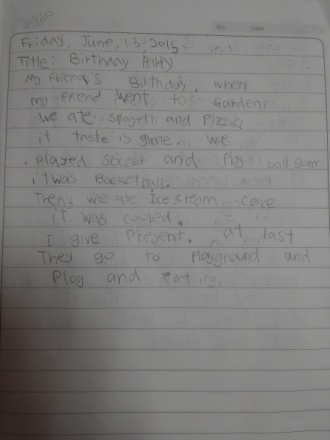 Friday, June, 13 2015
Title: Birthday Party
My friend's Birthday, when
my friend went to Garden
we ate spageti and Pizza
it taste is grate. we
played soccer and Play ball game.
it was Basketball.
Then, we ate Ice cream cake
it was cooled.
I give Present. at last
They go to Playground and
Play and eating.